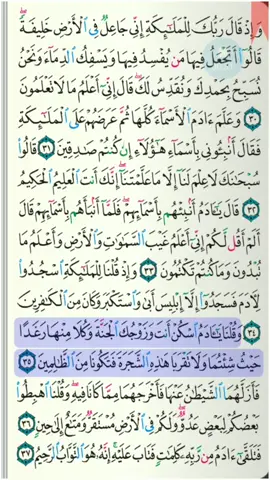 وَإِذْ قَالَ رَبُّكَ لِلْمَلَٰٓئِكَةِ إِنِّى جَاعِلٌ فِى ٱلْأَرْضِ خَلِيفَةً ۖ
قَالُوٓا۟ أَتَجْعَلُ فِيهَا مَن يُفْسِدُ فِيهَا وَيَسْفِكُ ٱلدِّمَآءَ وَنَحْنُ
نُسَبِّحُ بِحَمْدِكَ وَنُقَدِّسُ لَكَ ۖ قَالَ إِنِّىٓ أَعْلَمُ مَا لَا تَعْلَمُونَ
٣٠ وَعَلَّمَ ءَادَمَ ٱلْأَسْمَآءَ كُلَّهَا ثُمَّ عَرَضَهُمْ عَلَى ٱلْمَلَٰٓئِكَةِ
فَقَالَ أَنۢبِـُٔونِى بِأَسْمَآءِ هَٰٓؤُلَآءِ إِن كُنتُمْ صَٰدِقِينَ ٣١ قَالُوا۟
سُبْحَٰنَكَ لَا عِلْمَ لَنَآ إِلَّا مَا عَلَّمْتَنَآ ۖ إِنَّكَ أَنتَ ٱلْعَلِيمُ ٱلْحَكِيمُ
٣٢ قَالَ يَٰٓـَٔادَمُ أَنۢبِئْهُم بِأَسْمَآئِهِمْ ۖ فَلَمَّآ أَنۢبَأَهُم بِأَسْمَآئِهِمْ قَالَ
أَلَمْ أَقُل لَّكُمْ إِنِّىٓ أَعْلَمُ غَيْبَ ٱلسَّمَٰوَٰتِ وَٱلْأَرْضِ وَأَعْلَمُ مَا
تُبْدُونَ وَمَا كُنتُمْ تَكْتُمُونَ ٣٣ وَإِذْ قُلْنَا لِلْمَلَٰٓئِكَةِ ٱسْجُدُوا۟
لِـَٔادَمَ فَسَجَدُوٓا۟ إِلَّآ إِبْلِيسَ أَبَىٰ وَٱسْتَكْبَرَ وَكَانَ مِنَ ٱلْكَٰفِرِينَ
٣٤ وَقُلْنَا يَٰٓـَٔادَمُ ٱسْكُنْ أَنتَ وَزَوْجُكَ ٱلْجَنَّةَ وَكُلَا مِنْهَا رَغَدًا
حَيْثُ شِئْتُمَا وَلَا تَقْرَبَا هَٰذِهِ ٱلشَّجَرَةَ فَتَكُونَا مِنَ ٱلظَّٰلِمِينَ ٣٥
فَأَزَلَّهُمَا ٱلشَّيْطَٰنُ عَنْهَا فَأَخْرَجَهُمَا مِمَّا كَانَا فِيهِ ۖ وَقُلْنَا ٱهْبِطُوا۟
بَعْضُكُمْ لِبَعْضٍ عَدُوٌّ ۖ وَلَكُمْ فِى ٱلْأَرْضِ مُسْتَقَرٌّ وَمَتَٰعٌ إِلَىٰ حِينٍ ٣٦
فَتَلَقَّىٰٓ ءَادَمُ مِن رَّبِّهِۦ كَلِمَٰتٍ فَتَابَ عَلَيْهِ ۚ إِنَّهُۥ هُوَ ٱلتَّوَّابُ ٱلرَّحِيمُ ٣٧